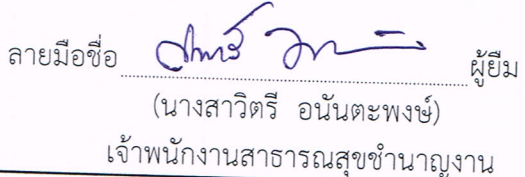 ลายมือชื่อ ผู้ยืม
(นางสาวิตรี อนันตะพงษ์)
เจ้าพนักงานสาธารณสุขชำนาญงาน